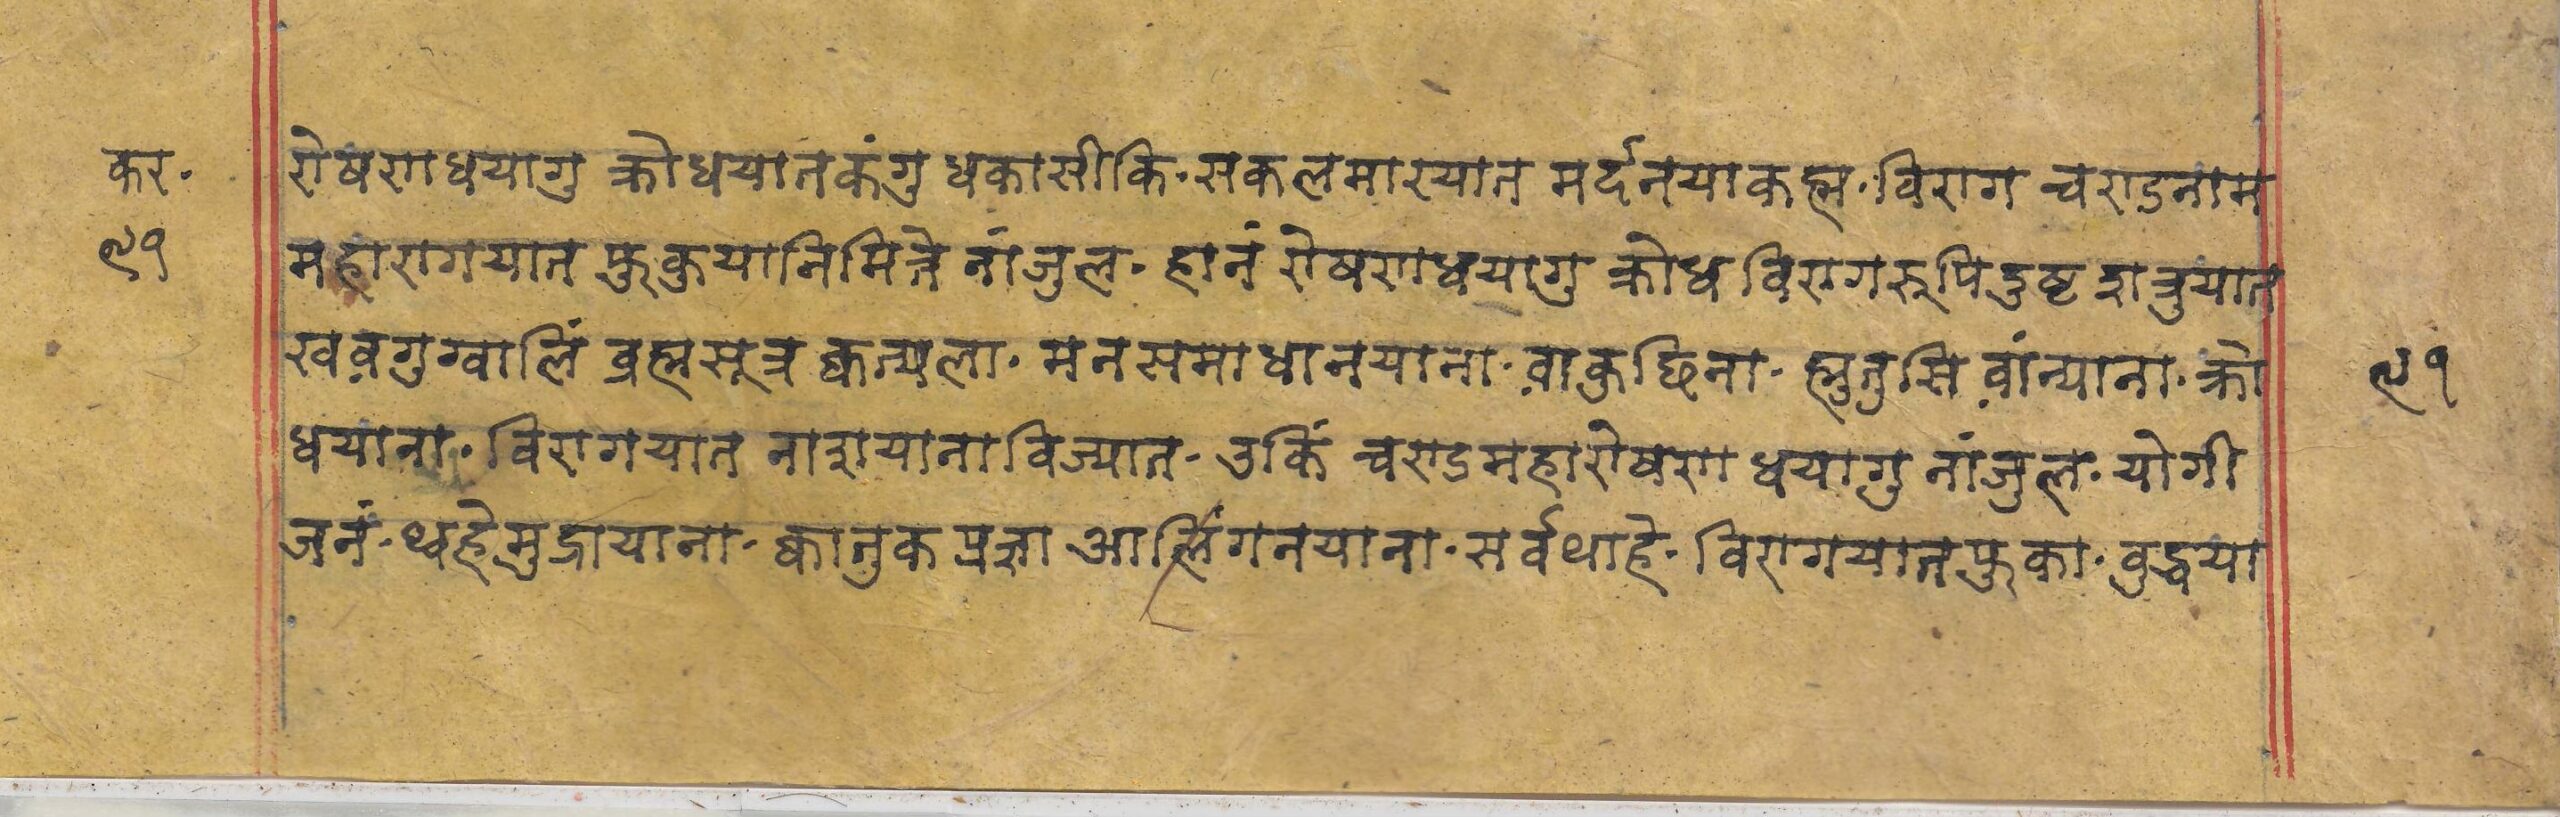 कर॰ रोषण धयागु क्रोधयातकंगु धकासीकि॰ सकलमारयात मर्दनयाकह्म॰ विराग चण्डनाम
९१ महारागयात फुकुयानिमित्ते नांजुल॰ हानं रोषणधयागु क्रोध विरागरूपि दुष्ट शत्रुयात
खवगुग्वालिं ब्रह्मसूत्र क्वत्यला॰ मनसमाधानयाना॰ वाकुछिना॰ ह्मुतुसि वांन्याना॰ क्रो ९१
धयाना॰ विरागयात नाशयानाविज्यात॰ उकिं चण्डमहारोषण धयागु नांजुल॰ योगी
जनं॰ थ्वहे मुद्रायाना॰ क्वातुक प्रज्ञा आलिंगनयाना॰ सर्वथाहे॰ विरागयातफुका॰ वुद्धया